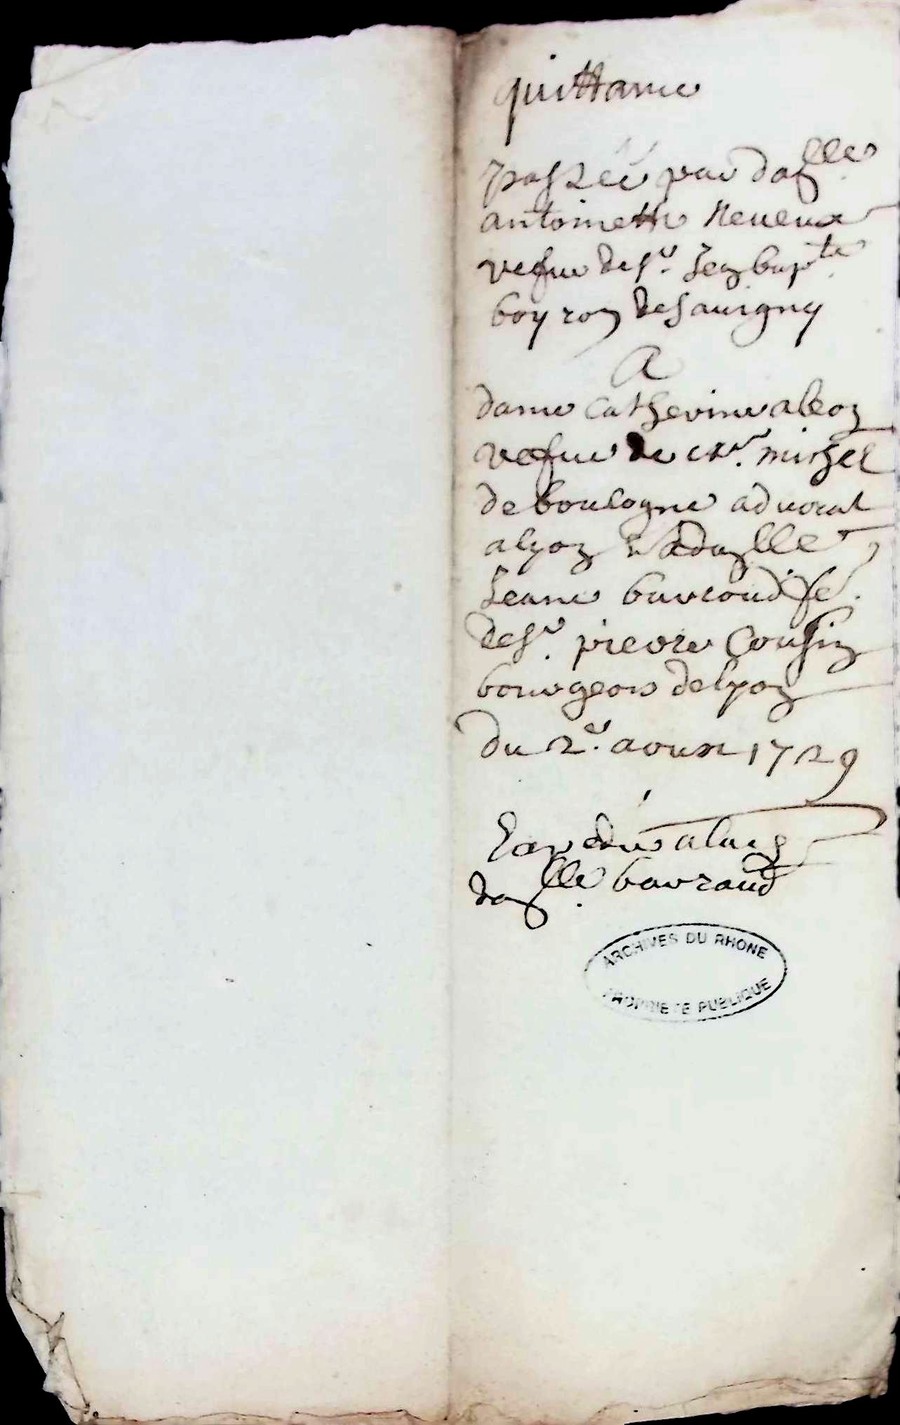 quittance
passée par da^lle
antoinette Neueux
vefue de s^r. Jean bap^te
boyron de Sauigny
A
dame Catherine
vefue de m^r. michel
de boulogne aduocat
a lyon & a da^lle
Jeanne bavraud fe.
de s^r. pierre Cousin
bourgeois de lyon
du 2^e. aoust 1729
Expedié a lad
da^lle. bavraud
ARCHIVES DU RHONE
PROPRIETE PUBLIQUE